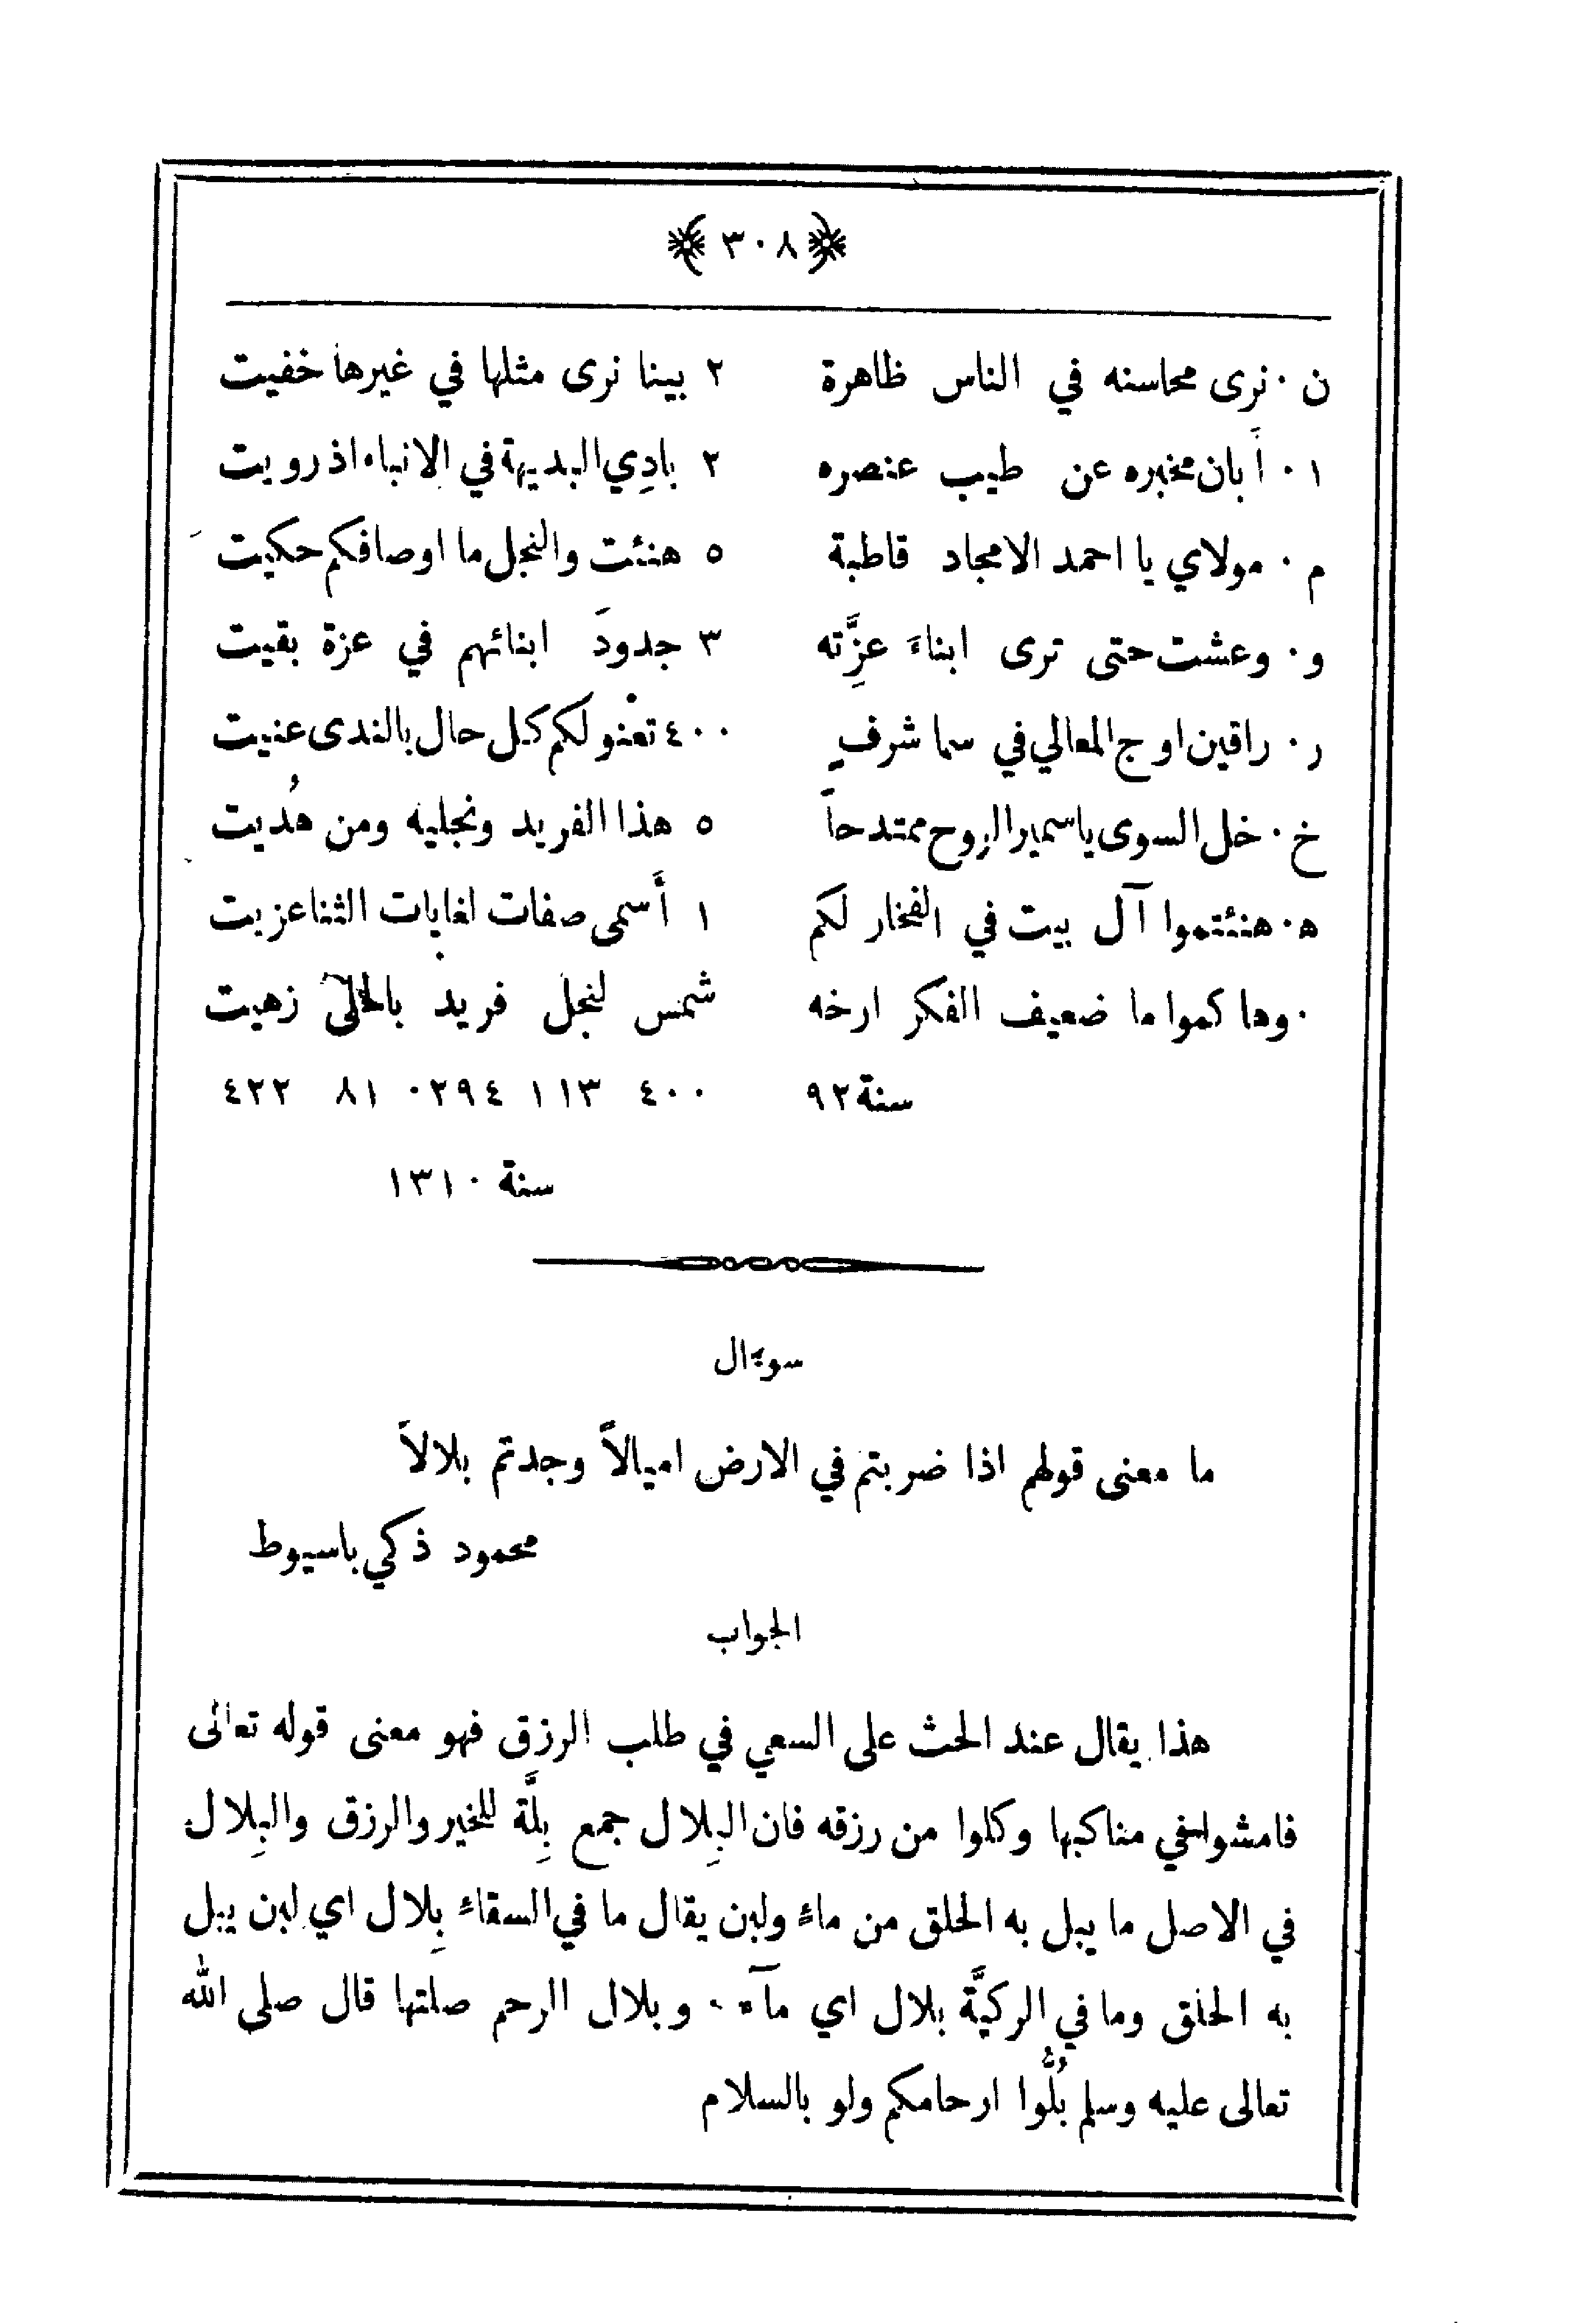 ﴿ ٣٠٨ ﴾
ن ٠ نرى محاسنه في الناس ظاهرة ٢ بينا نرى مثلها في غيرها خفيت
١ ٠ أَبان مخبره عن طيب عنصره ٢ بادِي البديهة في الانباء اذ رويت
م ٠ مولاي يا احمد الامجاد قاطبة ٥ هنئت والنجل ما اوصافكم حكيت
و ٠ وعشت حتى ترى ابناءَ عزَّتِه ٣ جدودَ ابنائهم في عزة بقيت
ر ٠ راقين اوج المعالي في سما شرفٍ ٤٠٠ تعْنو لكم كل حال بالندى عنيت
خ ٠ خل السوى ياسمير الروح ممتدحاً ٥ هذا الفريد ونجليه ومن هُديت
ه ٠ هنئتموا آل بيت في الفخار لكم ١ أَسمى صفات لغايات الثنا عزيت
٠ وها كموا ما ضعيف الفكر ارخه شمس لنجل فريد بالحلىّ زهيت
سنة ٩٢ ٤٠٠ ١١٣ ٢٩٤٠ ٨١ ٤٢٢
سنة ١٣١٠
سوءال
ما معنى قولهم اذا ضربتم في الارض اميالاً وجدتم بلالاً
محمود ذكي باسيوط
الجواب
هذا يقال عند الحث على السعي في طلب الرزق فهو معنى قوله تعالى
فامشوا في مناكبها وكلوا من رزقه فان البِلال جمع بِلَّة للخير والرزق والبِلال
في الاصل ما يبل به الحلق من ماءٍ ولبن يقال ما في السقاءِ بِلال اي لبن يبل
به الحلق وما في الركيَّة بلال اي مآء ٠ وبلال الرحم صلتها قال صلى الله
تعالى عليه وسلم بُلُّوا ارحامكم ولو بالسلام